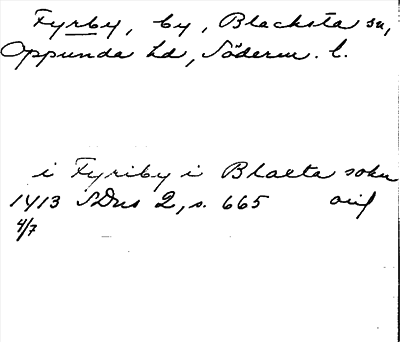 Fyrby, by, Blacksta sn,
Oppunda hd, Söderm. l.
i Fyriby i Blacta sokn
1413 SDns 2, s. 665 orig
4/7